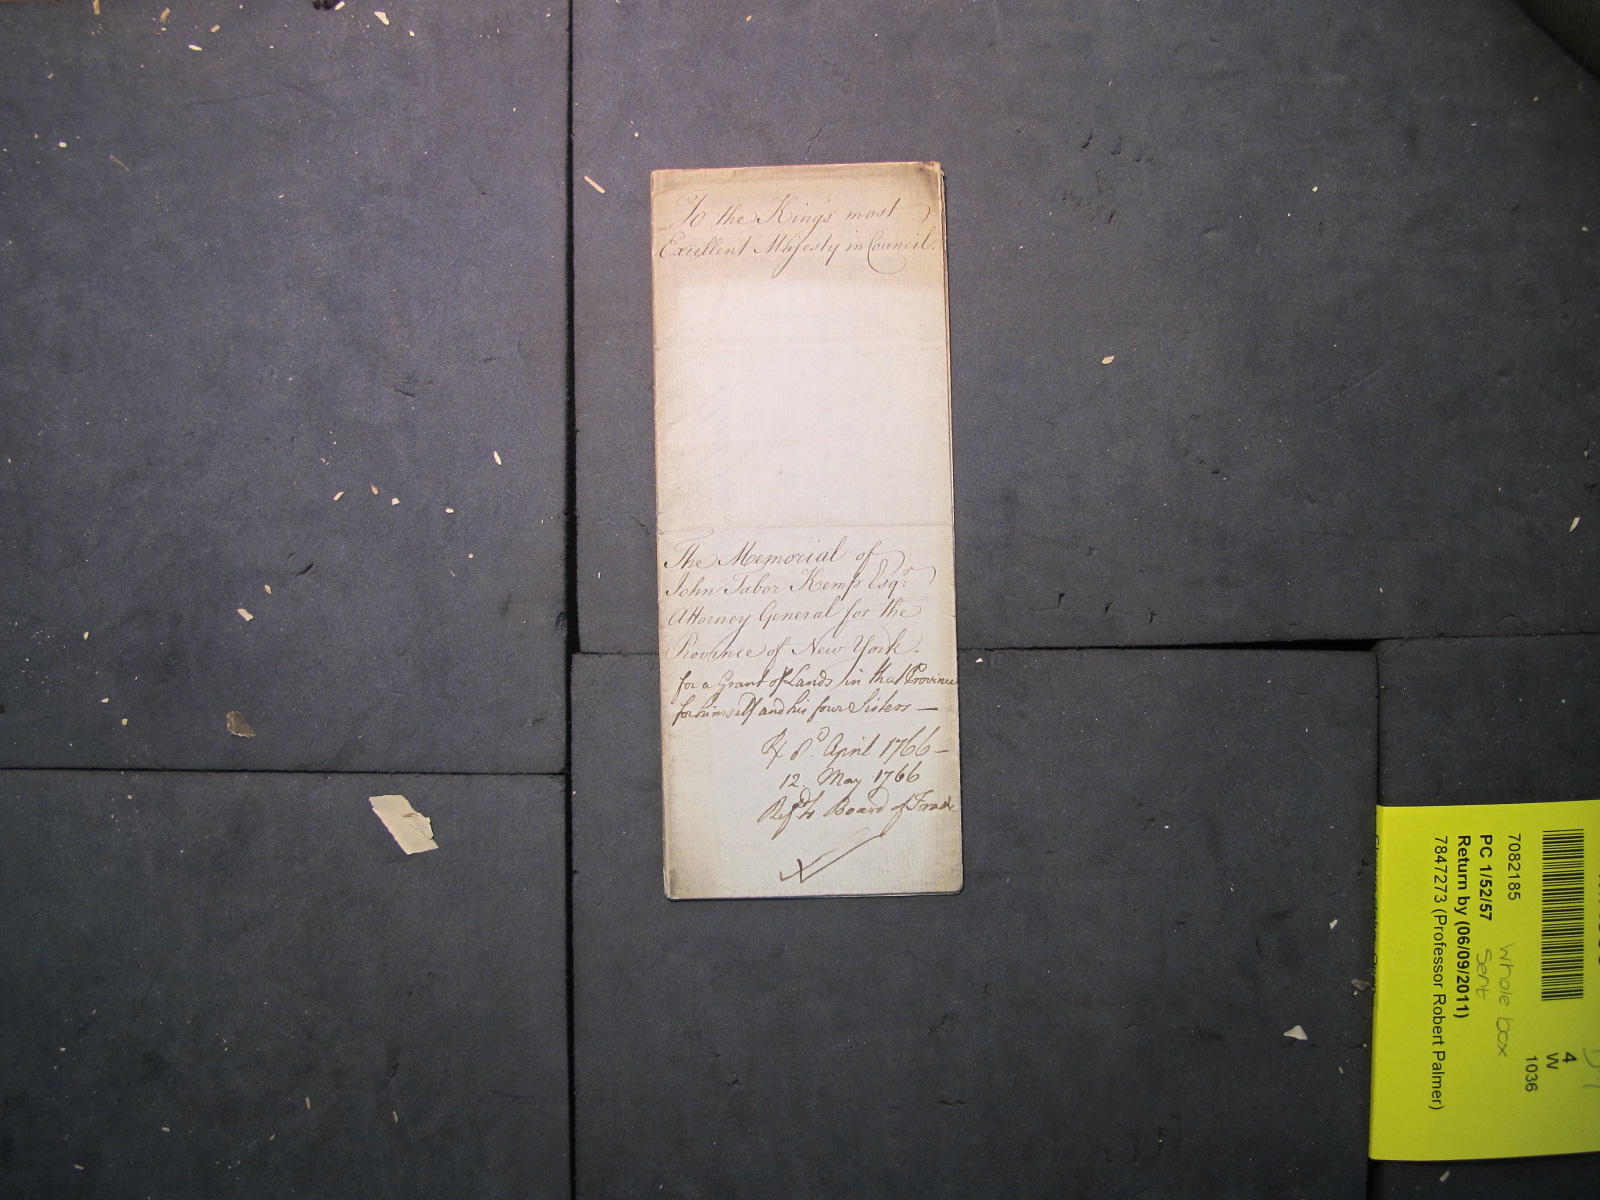 To the King's most
Excellent Majesty in Council.
The Memorial of
John Tabor Kemp Esqr.
Attorney General for the
Province of New York.
for a Grant of Lands in that Province
for himself and his four Sisters —
April 1766 —
12. May 1766
Refd. to Board of Trade
7082185
PC 1/52/57
Return by (06/09/2011)
7847273 (Professor Robert Palmer)
whole box
sent
4
W
1036